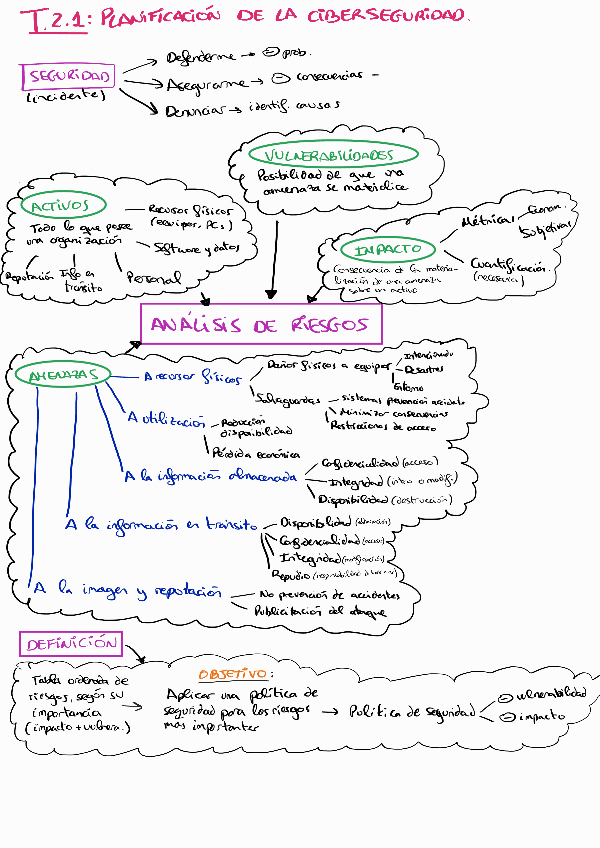 T.2.1: PLANIFICACIÓN DE LA CIBERSEGURIDAD.
SEGURIDAD
(incidente)
Defenderme → ⊖ prob.
Asegurarme → ⊖ consecuencias -
Denunciar → identif. causas
VULNERABILIDADES
Posibilidad de que una
amenaza se materialice
ACTIVOS
Todo lo que posee
una organización
Recursos físicos
(equipos, PCs)
Software y datos
Personal
Info en
tránsito
Reputación
IMPACTO
Consecuencia de la materia-
lización de una amenaza
sobre un activo
Métricas
Econom.
Subjetivas
Cuantificación
(necesaria)
ANÁLISIS DE RIESGOS
AMENAZAS
A recursos físicos
Daños físicos a equipos
Intencionado
Desastres
Entorno
Salvaguardas
Sistemas prevención accidente
Minimizar consecuencias
Restricciones de acceso
A utilización
Reducción
disponibilidad
Pérdida económica
A la información almacenada
Confidencialidad (acceso)
Integridad (intro. o modif.)
Disponibilidad (destrucción)
A la información en tránsito
Disponibilidad
Confidencialidad (acceso)
Integridad (modificación)
Repudio
A la imagen y reputación
No prevención de accidentes
Publicitación del ataque
DEFINICIÓN
Tabla ordenada de
riesgos, según su
importancia
(impacto + vulnera.)
OBJETIVO:
Aplicar una política de
seguridad para los riesgos
más importantes
→ Política de seguridad
⊖ vulnerabilidad
⊖ impacto